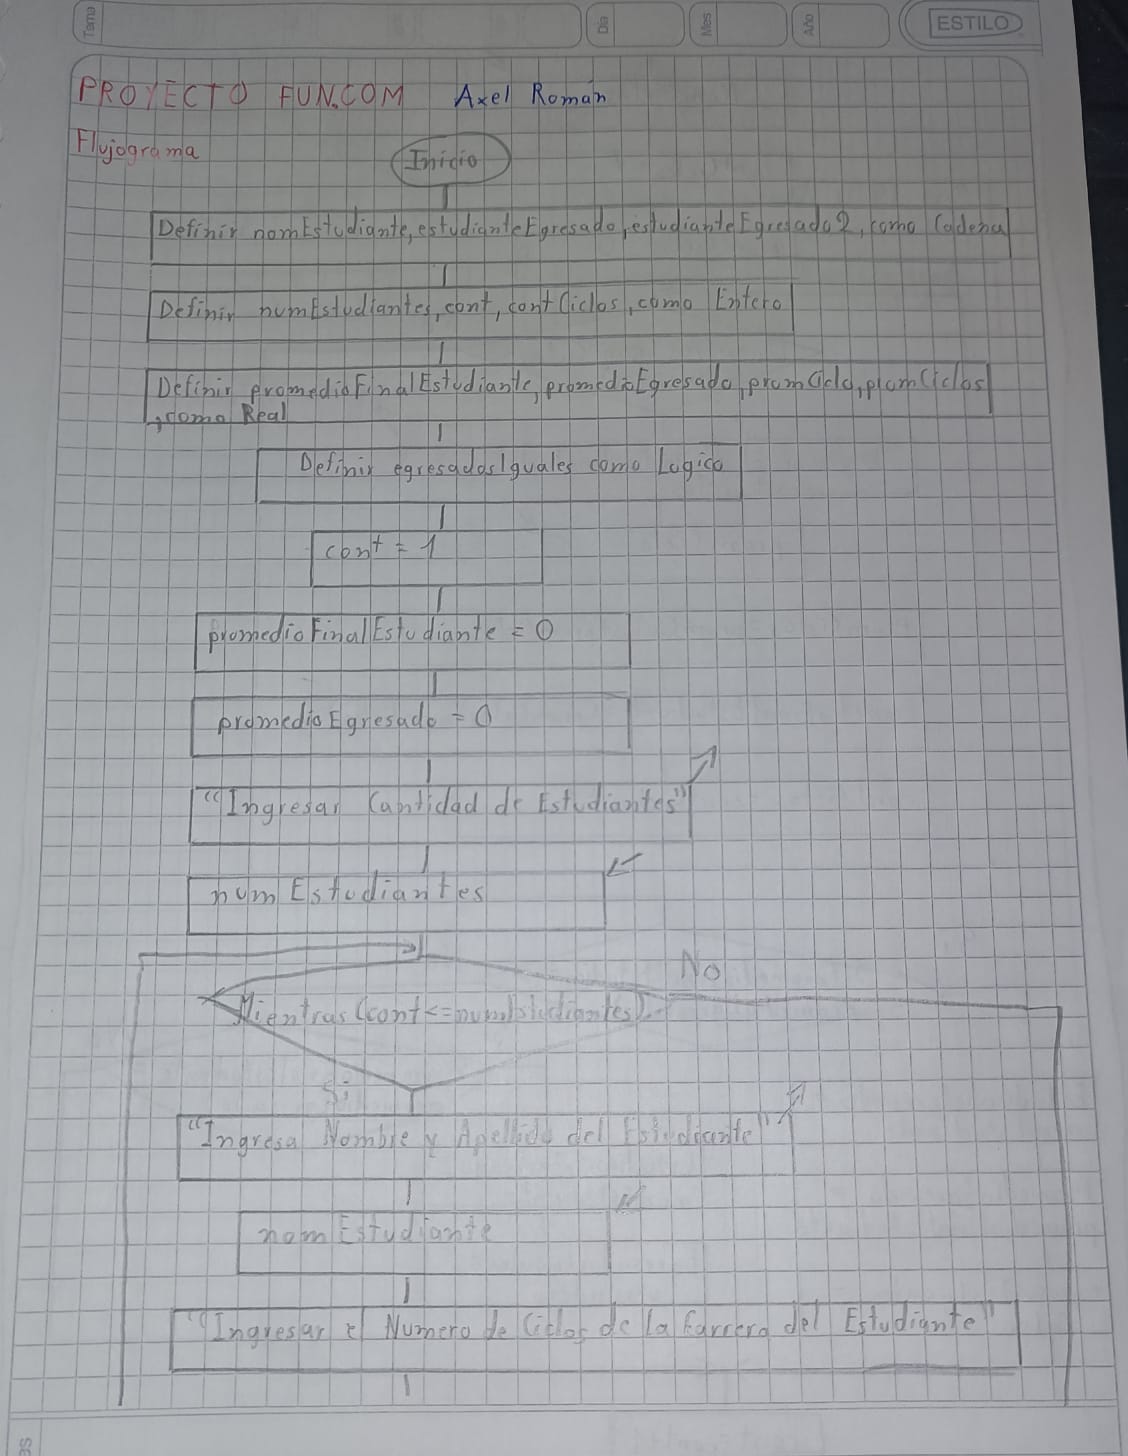 Tema
Dia
Mes
Año
ESTILO
PROYECTO FUN.COM Axel Román
Flujograma
Inicio
Definir nomEstudiante, estudianteEgresado, estudianteEgresado2, como Cadena
Definir numEstudiantes, cont, contCiclos, como Entero
Definir promedioFinalEstudiante, promedioEgresado, promCiclo, promCiclos
, como Real
Definir egresadosIguales como Logico
cont = 1
promedioFinalEstudiante = 0
promedioEgresado = 0
"Ingresar Cantidad de Estudiantes"
numEstudiantes
No
Mientras (cont <= numEstudiantes)
Si
"Ingresa Nombre y Apellido del Estudiante"
nomEstudiante
"Ingresar el Numero de Ciclos de la Carrera del Estudiante"